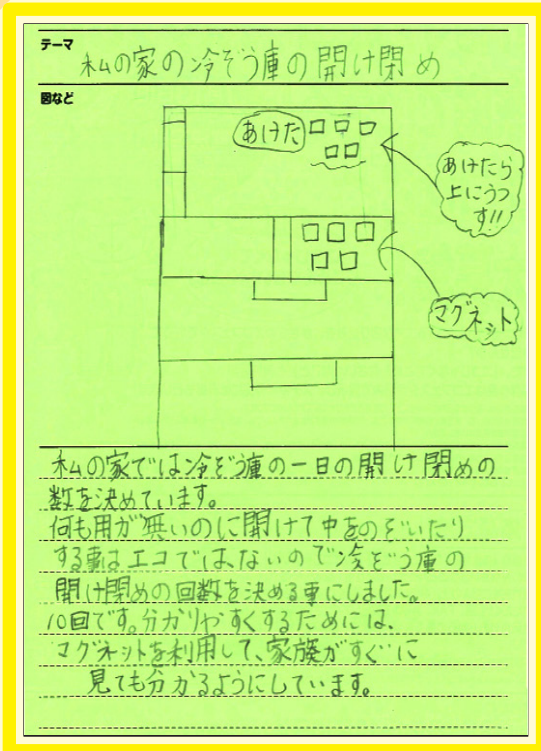 テーマ
私の家の冷ぞう庫の開け閉め
図など
あけた
あけたら
上にうつ
す!!
マグネット
私の家では冷ぞう庫の一日の開け閉めの
数を決めています。
何も用が無いのに開けて中をのぞいたり
する事はエコでは、ないので冷ぞう庫の
開け閉めの回数を決める事にしました。
10回です。分かりやすくするためには、
マグネットを利用して、家族がすぐに
見ても分かるようにしています。